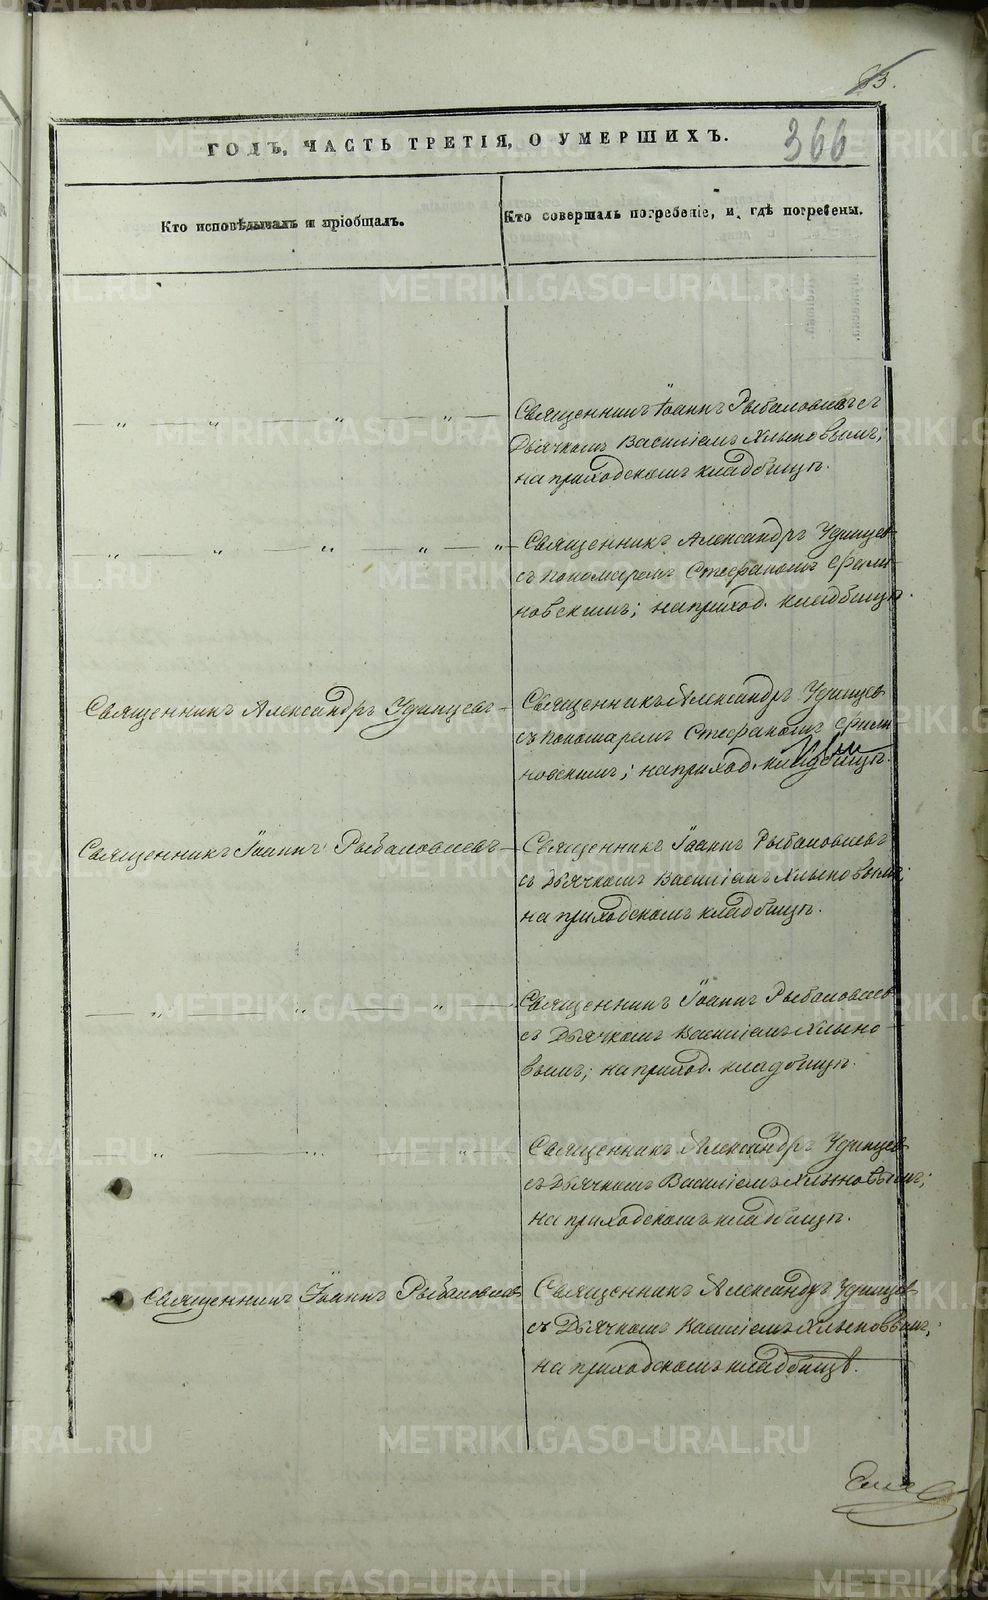 83.
366
ГОДЪ, ЧАСТЬ ТРЕТІЯ, О УМЕРШИХЪ.
Кто исповѣдывалъ и пріобщалъ.
Кто совершалъ погребеніе, и гдѣ погребены.
— „ — „ — „ — „ —
Священникъ Іоаннъ Рыболовлевъ съ
Дьячкомъ Василіемъ Хлыновымъ;
на приходскомъ кладбищѣ.
— „ — „ — „ — „ — „ —
Священникъ Александръ Удинцев
съ пономаремъ Стефаномъ
новскимъ; на приход. кладбищѣ.
Священникъ Александръ Удинцевъ —
Священникъ Александръ Удинцев
съ пономаремъ Стефаномъ
новскимъ; на приход. кладбищѣ.
Священникъ Іоаннъ Рыболовлевъ —
Священникъ Іоаннъ Рыболовлевъ
съ Дьячкомъ Василіемъ Хлыновымъ;
на приходскомъ кладбищѣ.
— „ — „ — „ —
Священникъ Іоаннъ Рыболовлев
съ Дьячкомъ Василіемъ Хлыно-
вымъ; на приход. кладбищѣ.
— „ — „ — „ —
Священникъ Александръ Удинцев
съ Дьячкомъ Василіемъ Хлыновымъ;
на приходскомъ кладбищѣ.
Священникъ Іоаннъ Рыболовлев
Священникъ Александръ Удинцев
съ Дьячкомъ Василіемъ Хлыновымъ;
на приходскомъ кладбищѣ.
METRIKI.GASO-URAL.RU